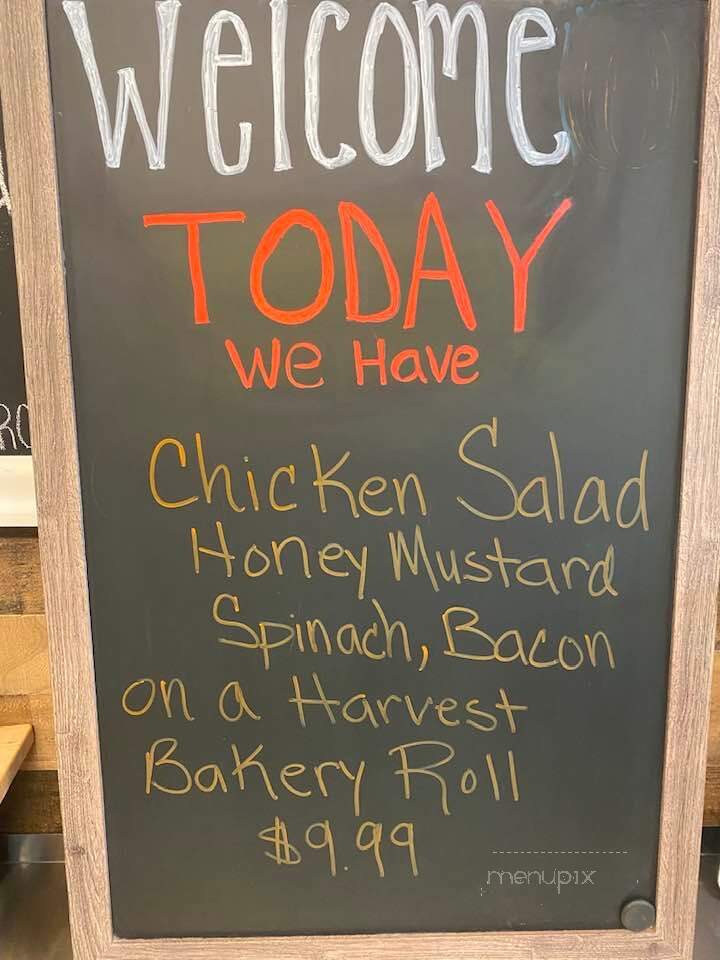 Welcome
TODAY
We Have
Chicken Salad
Honey Mustard
Spinach, Bacon
on a Harvest
Bakery Roll
$9.99
menupix